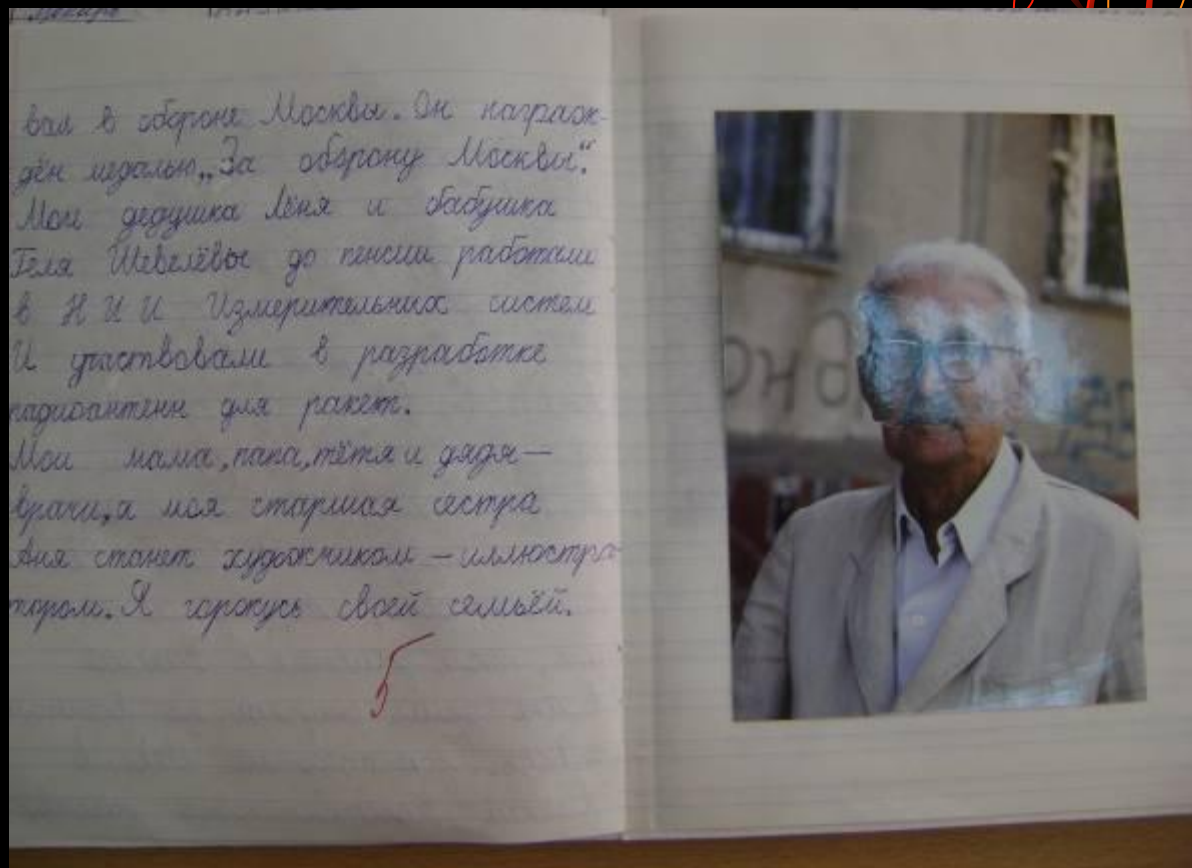 вал в обороне Москвы. Он награж-
дён медалью „За оборону Москвы“.
Мои дедушка Лёня и бабушка
Геля Шевелёвы до пенсии работали
в НИИ Измерительных систем
И участвовали в разработке
радиоантенн для ракет.
Мои мама, папа, тётя и дядя —
врачи, а моя старшая сестра
Аня станет художником — иллюстра
тором. Я горжусь своей семьёй.
5